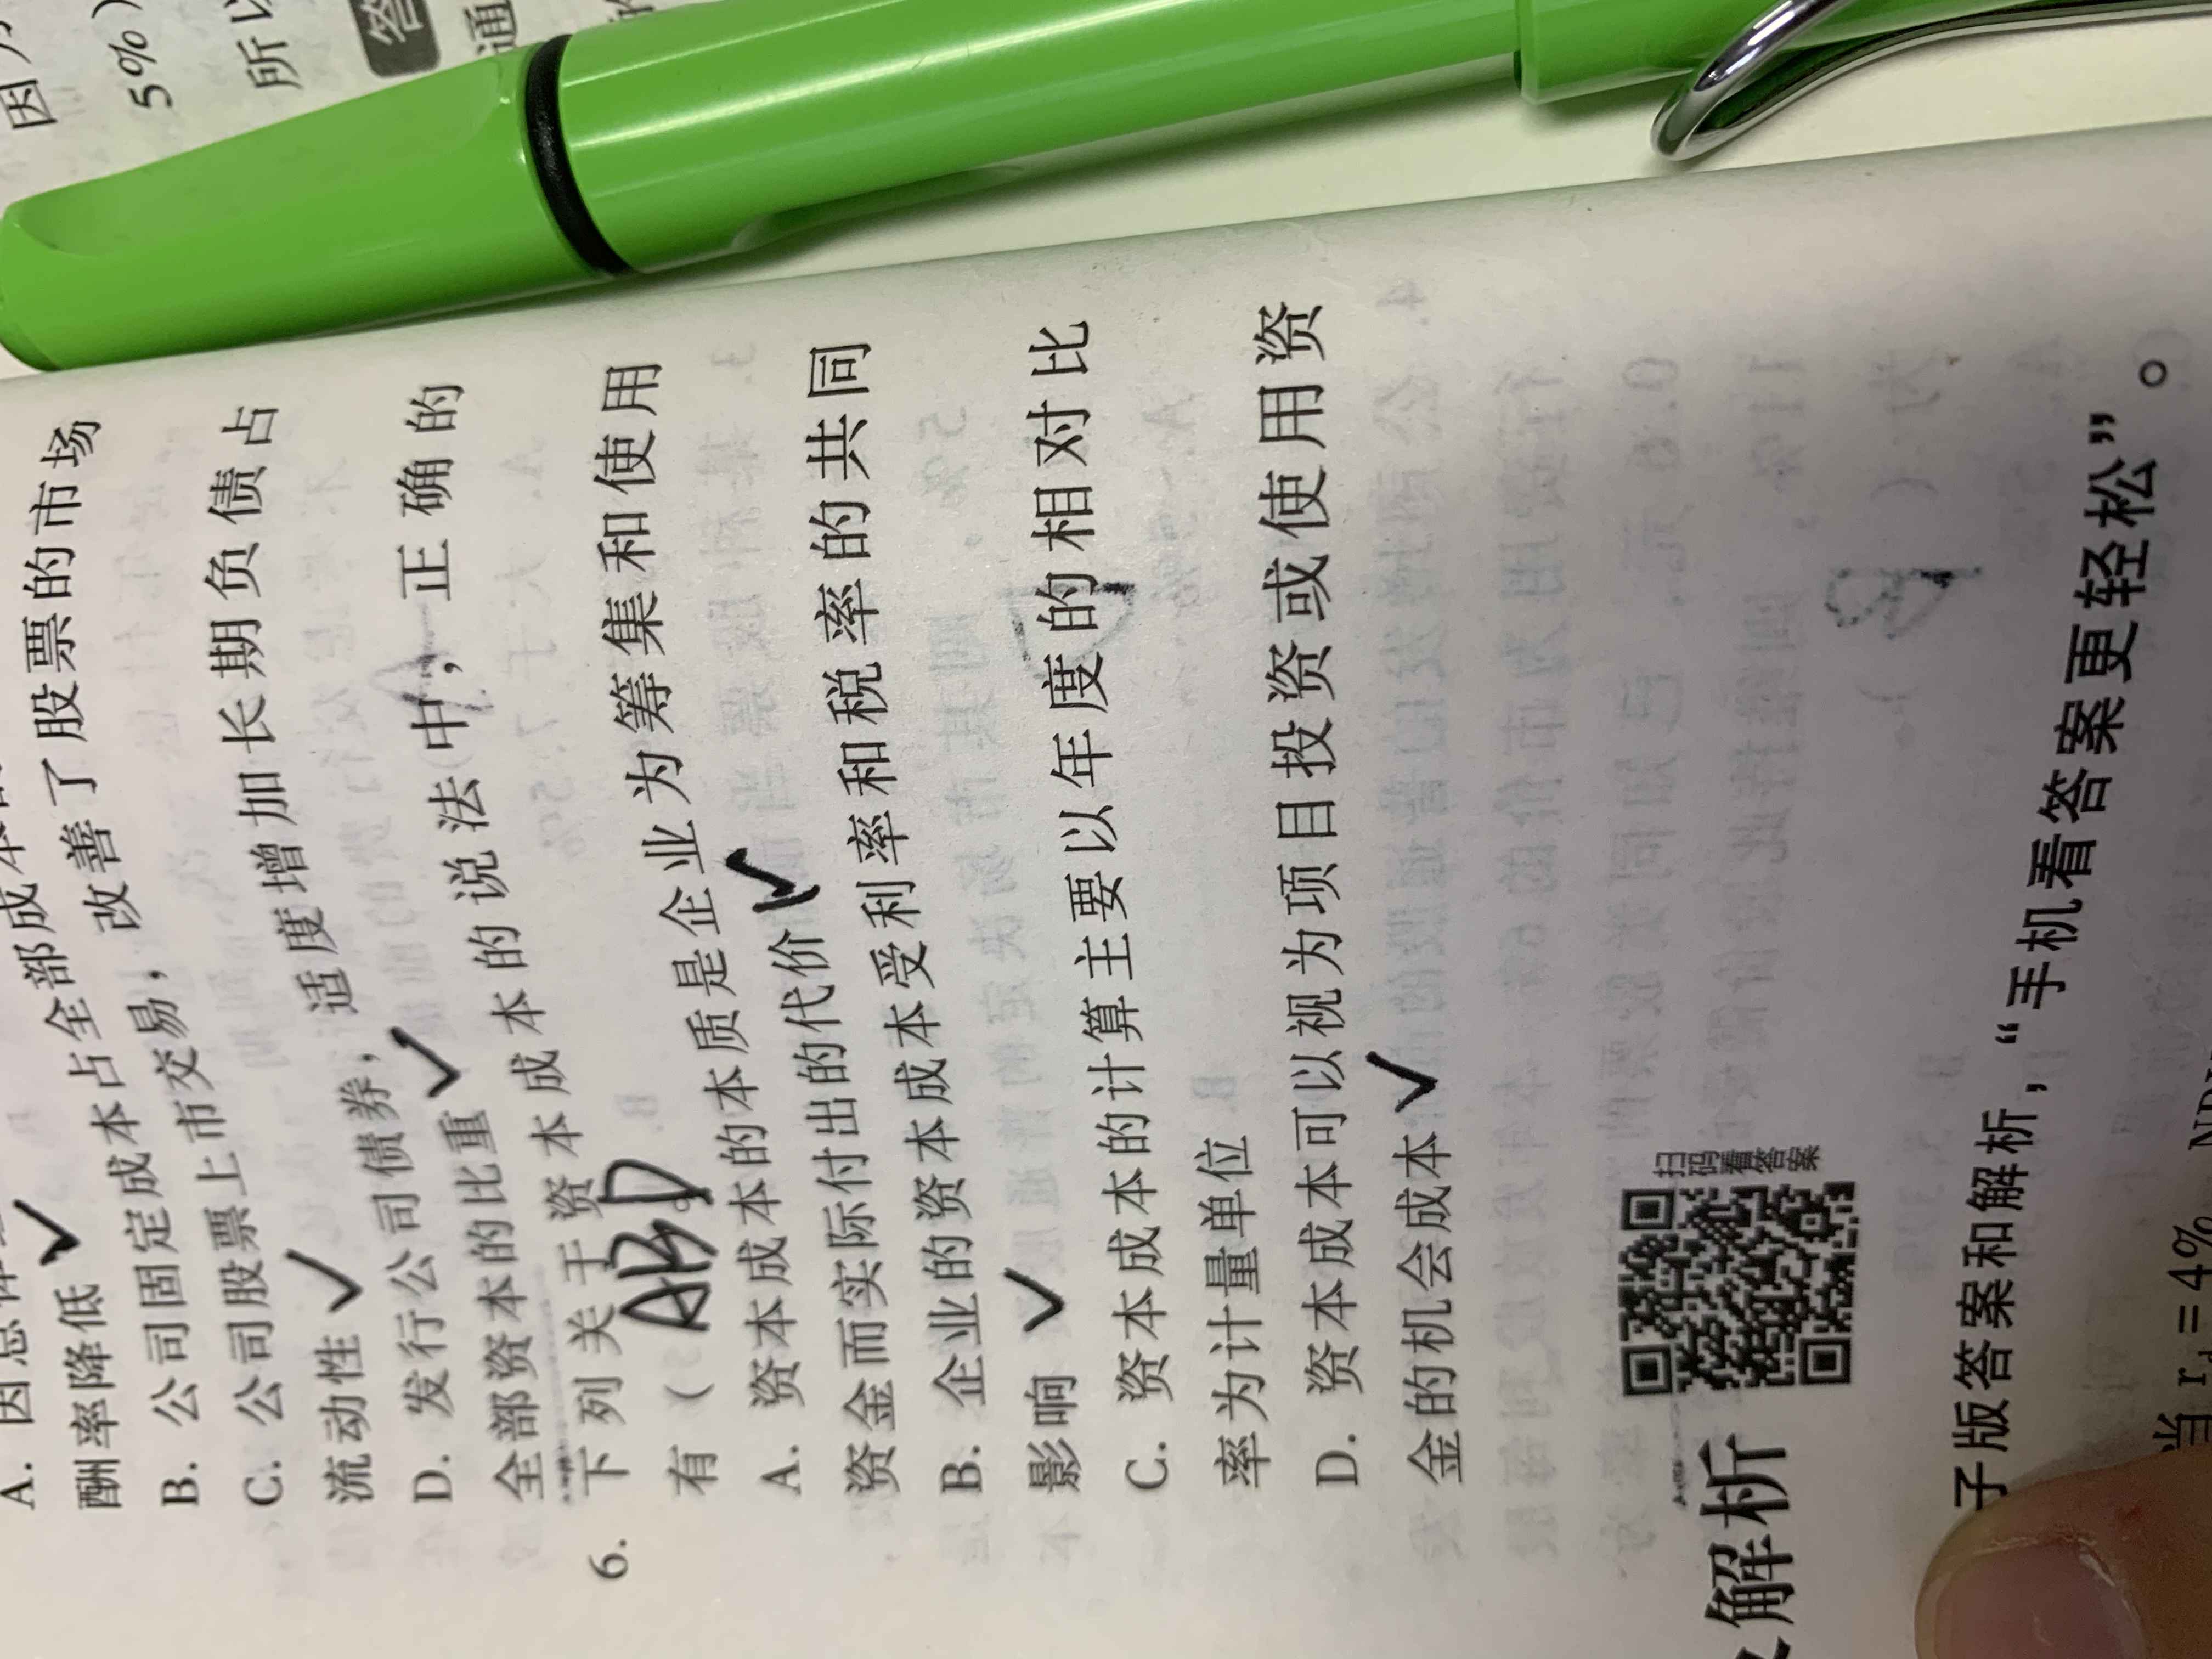 5%)
所以
答
通
A. 因总体经
酬率降低
B. 公司固定成本占全部成本
C. 公司股票上市交易，改善了股票的市场
流动性
D. 发行公司债券，适度增加长期负债占
全部资本的比重
6. 下列关于资本成本的说法中，正确的
有（ABD）。
A. 资本成本的本质是企业为筹集和使用
资金而实际付出的代价
B. 企业的资本成本受利率和税率的共同
影响
C. 资本成本的计算主要以年度的相对比
率为计量单位
D. 资本成本可以视为项目投资或使用资
金的机会成本
解析
扫码看答案
子版答案和解析，“手机看答案更轻松”。
当 r = 4%